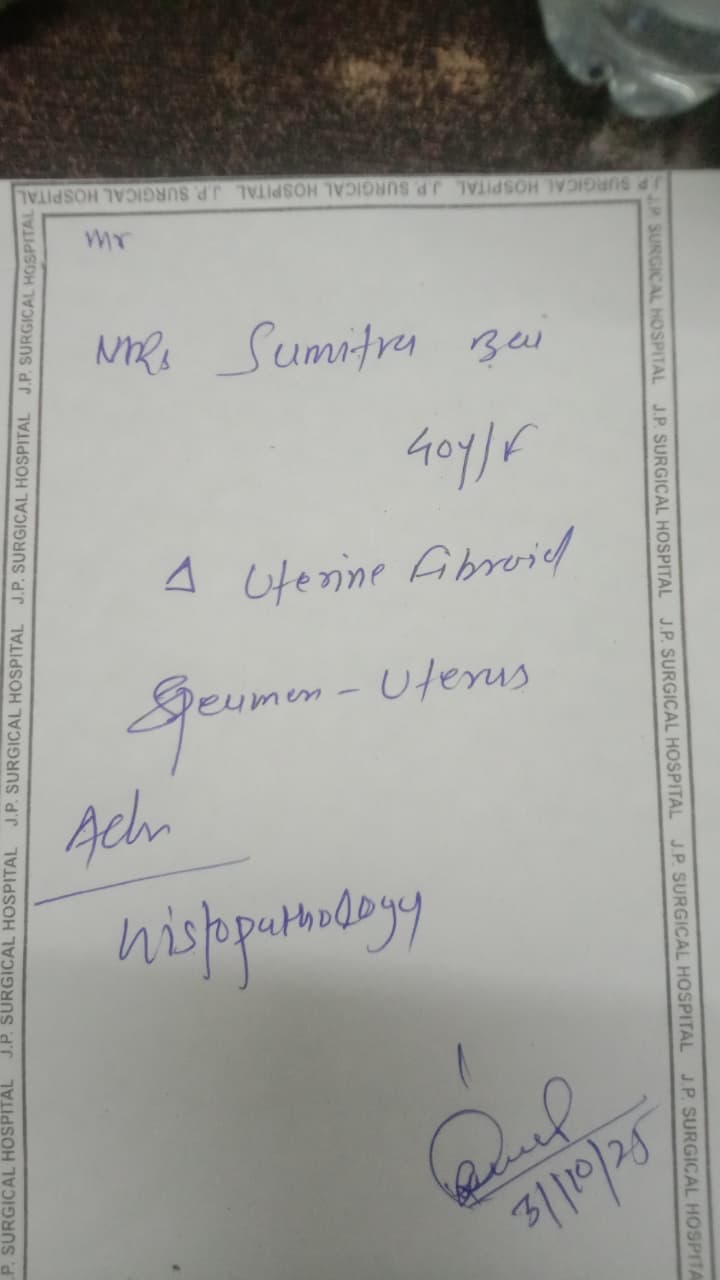 J.P. SURGICAL HOSPITAL J.P. SURGICAL HOSPITAL J.P. SURGICAL HOSPITAL
Mr
Mrs Sumitra Bai
40y/F
Δ Uterine Fibroid
Specimen - Uterus
Adv
histopathology
31/10/25
J.P. SURGICAL HOSPITAL J.P. SURGICAL HOSPITAL J.P. SURGICAL HOSPITAL J.P. SURGICAL HOSPITAL P. SURGICAL HOSPITAL
J.P. SURGICAL HOSPITAL J.P. SURGICAL HOSPITAL J.P. SURGICAL HOSPITAL J.P. SURGICAL HOSPITAL J.P. SURGICAL HOSPITA